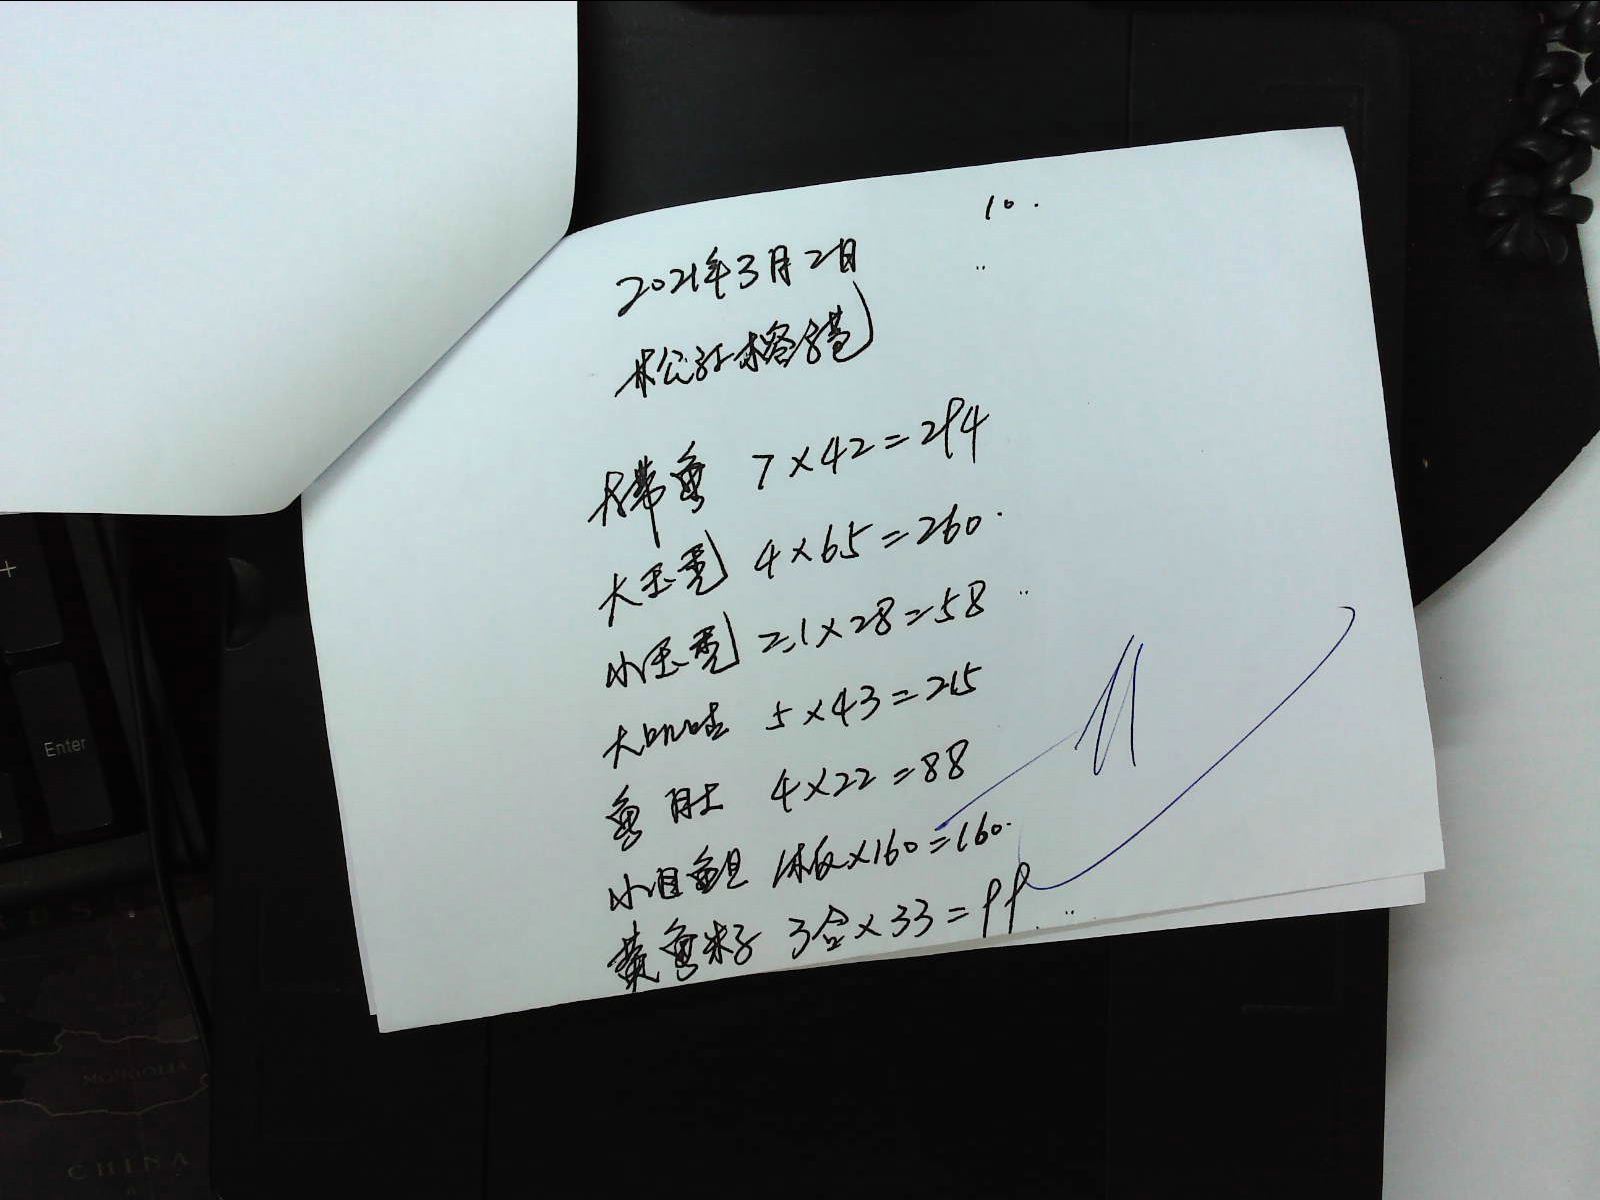 10.
2021年3月2日
松江榕港
大带鱼 7×42=294
大玉秃 4×65=260.
小玉秃 2.1×28=58
大明哇 5×43=215
鱼肚 4×22=88
小目鱼旦 1板×160=160.
黄鱼籽 3合×33=99.
Enter
MONGOLIA
CHINA